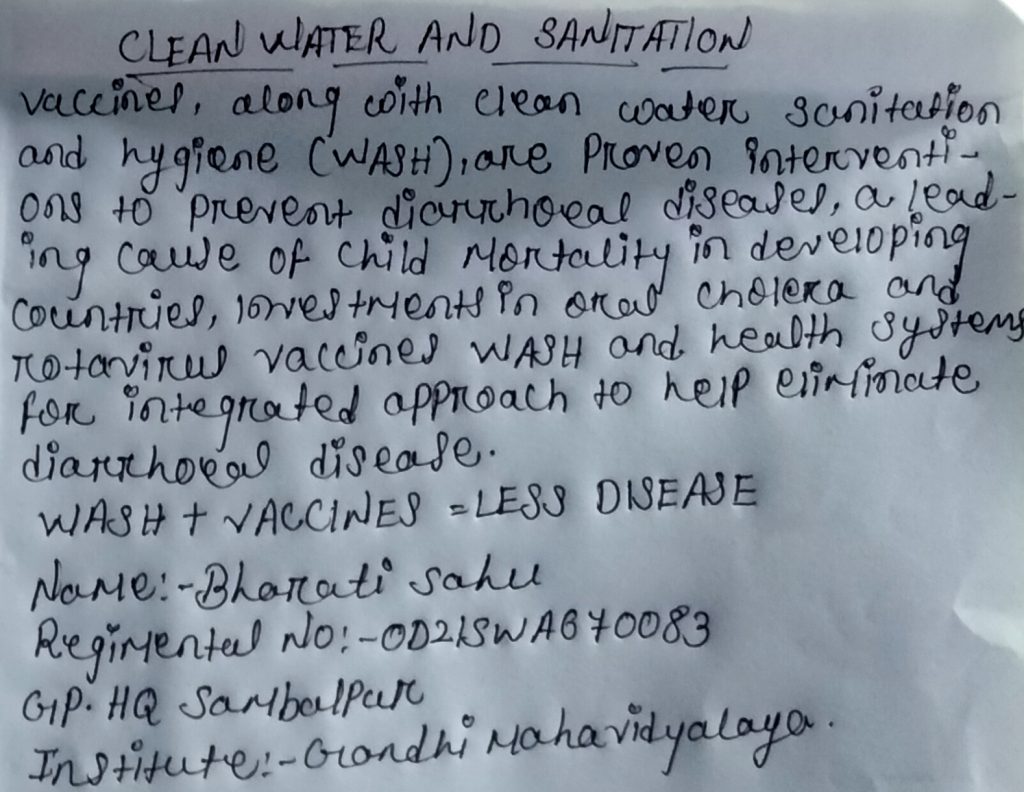 CLEAN WATER AND SANITATION
vaccines, along with clean water sanitation
and hygiene (WASH), are Proven interventi-
ons to prevent diarrhoeal diseases, a lead-
ing cause of child Mortality in developing
countries, investments in oral cholera and
rotavirus vaccines WASH and health systems
for integrated approach to help eliminate
diarrhoeal disease.
WASH + VACCINES = LESS DISEASE
Name:- Bharati sahu
Regimental No:- OD21SWA670083
GP. HQ Sambalpur
Institute:- Gandhi Mahavidyalaya.